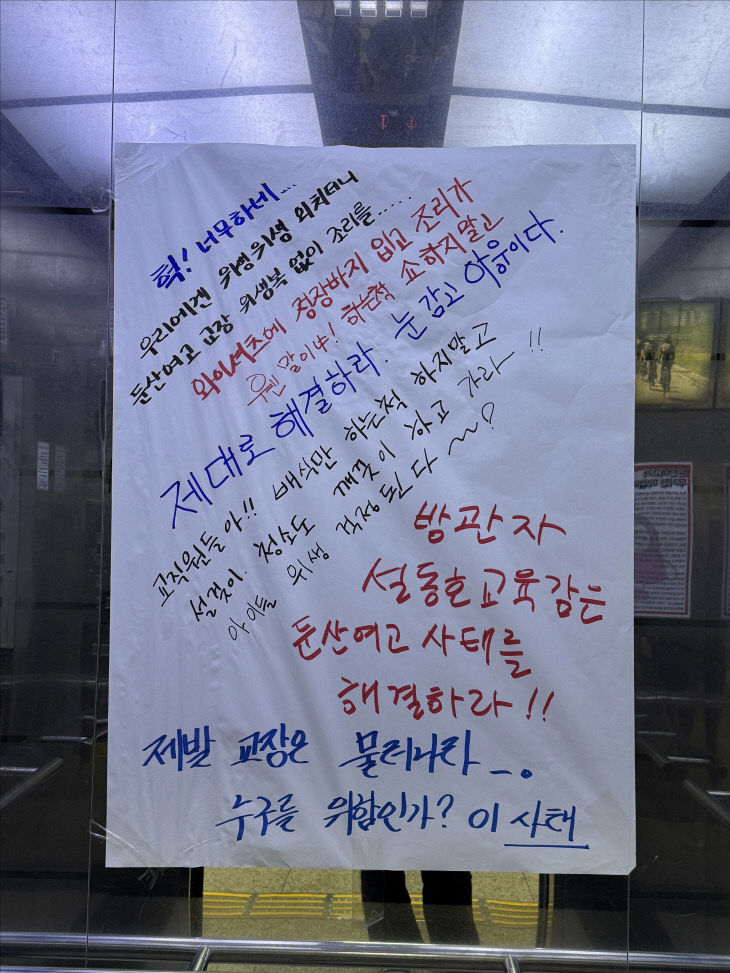 헉! 너무하네....
우리에겐 위생위생 외치더니
둔산여고 교장 위생복 없이 조리를.....
와이셔츠에 정장바지 입고 조리가
웬 말이냐! 하는척 쇼하지말고
제대로 해결하라. 눈 감고 아웅이다.
교직원들아!! 배식만 하는척 하지말고
설겆이. 청소도 깨끗이 하고 가라~!!
아이들 위생 걱정된다~~!
방관자
설동호교육감은
둔산여고 사태를
해결하라!!
제발 교장은 물러나라_.
누구를 위함인가? 이 사태
↑
1